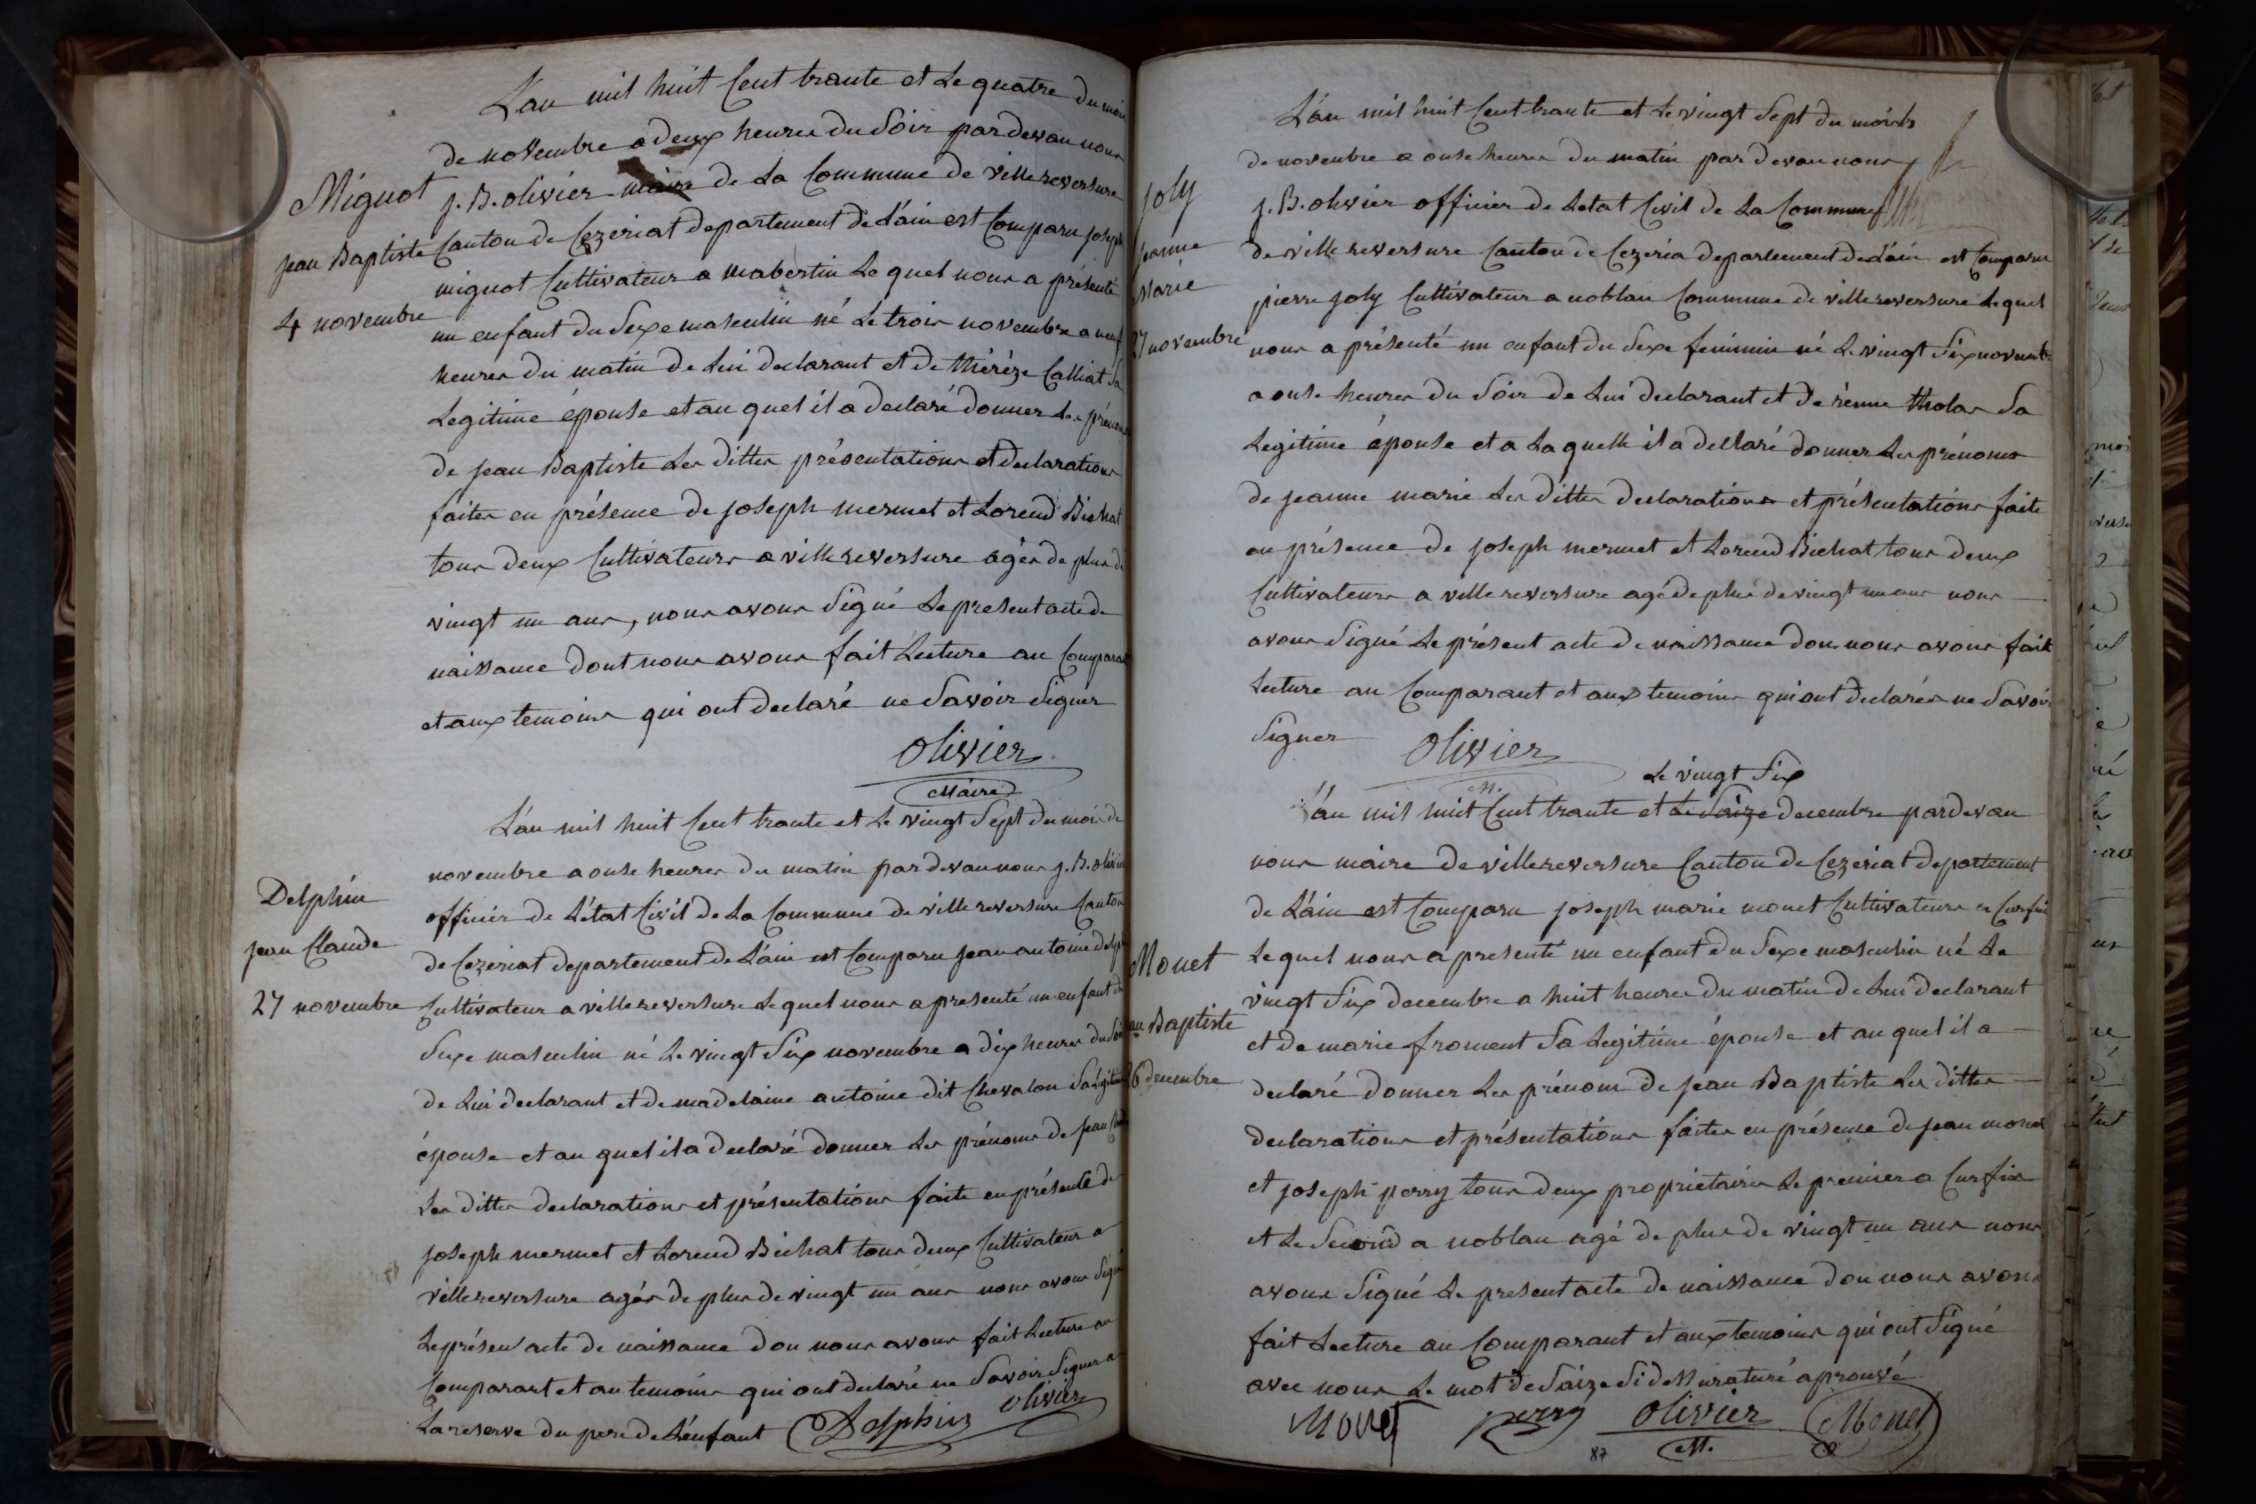 L'an mil huit Cent trante et Le quatre du moi
de novembre a deux heures du Soir par devan nous
j. B. olivier maire de La Commune de villereversure
Canton de Cezeriat departement de L'ain est Comparu joseph
mignot Cultivateur a mabertin Le quel nous a présenté
un enfant du Sexe masculin né Le trois novembre a neuf
heures du matin de Lui declarant et de thérèze Calliat Sa
Legitime épouse et au quel il a declaré donner Les prénoms
de jean Baptiste Les dittes présentations et declarations
faites en présence de joseph mermet et Lorend Bichat
tous deux Cultivateurs a villereversure agés de plus de
vingt un ans, nous avons Signé Le present acte de
naissance dont nous avons fait Lecture au Comparant
et aux temoins qui ont declaré ne Savoir Signer
Olivier
Maire
Mignot
jean Baptiste
4 novembre
L'an mil huit Cent trante et Le vingt Sept du moi de
novembre a onse heures du matin par devan nous j. B. olivier
officier de L'état Civil de La Commune de villereversure Canton
de Cezeriat departement de L'ain est Comparu jean antoine delphin
Cultivateur a villereversure Le quel nous a presenté un enfant du
Sexe masculin né Le vingt Six novembre a dix heures du Soir
de Lui declarant et de madelaine antoine dit Chevalon Sa Légitime
épouse et au quel il a declaré donner Les prénoms de jean Claude
Les dittes declarations et présentations faite en présence de
joseph mermet et Lorend Bichat tous deux Cultivateur a
villereversure agés de plus de vingt un ans nous avons Signé
Le présen acte de naissance don nous avons fait Lecture au
Comparant et au temoins qui ont declaré ne Savoir Signer a
La reserve du pere de L'enfant Delphin Olivier
Delphin
jean Claude
27 novembre
L'an mil huit Cent trante et Le vingt Sept du moids
de novembre a onse heures du matin par devan nous
j. B. olivier officier de Letat Civil de La Commune
de villereversure Canton de Cezeria departement de L'ain est Comparu
pierre joly Cultivateur a noblan Commune de villereversure Le quel
nous a présenté un enfant du Sexe feminin né Le vingt Six novembre
a onse heures du Soir de Lui declarant et de rènne tholas Sa
Legitime épouse et a La quelle il a declaré donner Les prénoms
de jeanne marie Les dittes declarations et présentations faite
en présence de joseph mermet et Lorend Bichat tous deux
Cultivateurs a villereversure agé de plus de vingt un ans nous
avons Signé Le présent acte de naissance don nous avons fait
Lecture au Comparant et aux temoins qui ont declarés ne Savoir
Signer Olivier
M.
joly
jeanne
Marie
27 novembre
Le vingt Six
L'an mil huit Cent trante et Le Saize decembre par devan
nous maire de villereversure Canton de Cezeriat departement
de L'ain est Comparu joseph marie monet Cultivateur a Curfin
Le quel nous a presenté un enfant du Sexe masculin né Le
vingt Six decembre a huit heures du matin de Lui declarant
et de marie froment Sa Legitime épouse et au quel il a
declaré donner Les prénom de jean Baptiste Les dittes
declarations et présentations faites en présence de jean monet
et joseph perry tous deux propriétaires Le premier a Curfin
et Le Second a noblan agé de plus de vingt un ans nous
avons Signé Le present acte de naissance don nous avons
fait Lecture au Comparant et aux temoins qui ont Signé
avec nous Le mot de Saize Si dessu raturé aprouvé
Monet perry Olivier Monet
M.
87
Monet
an Baptiste
26 decembre